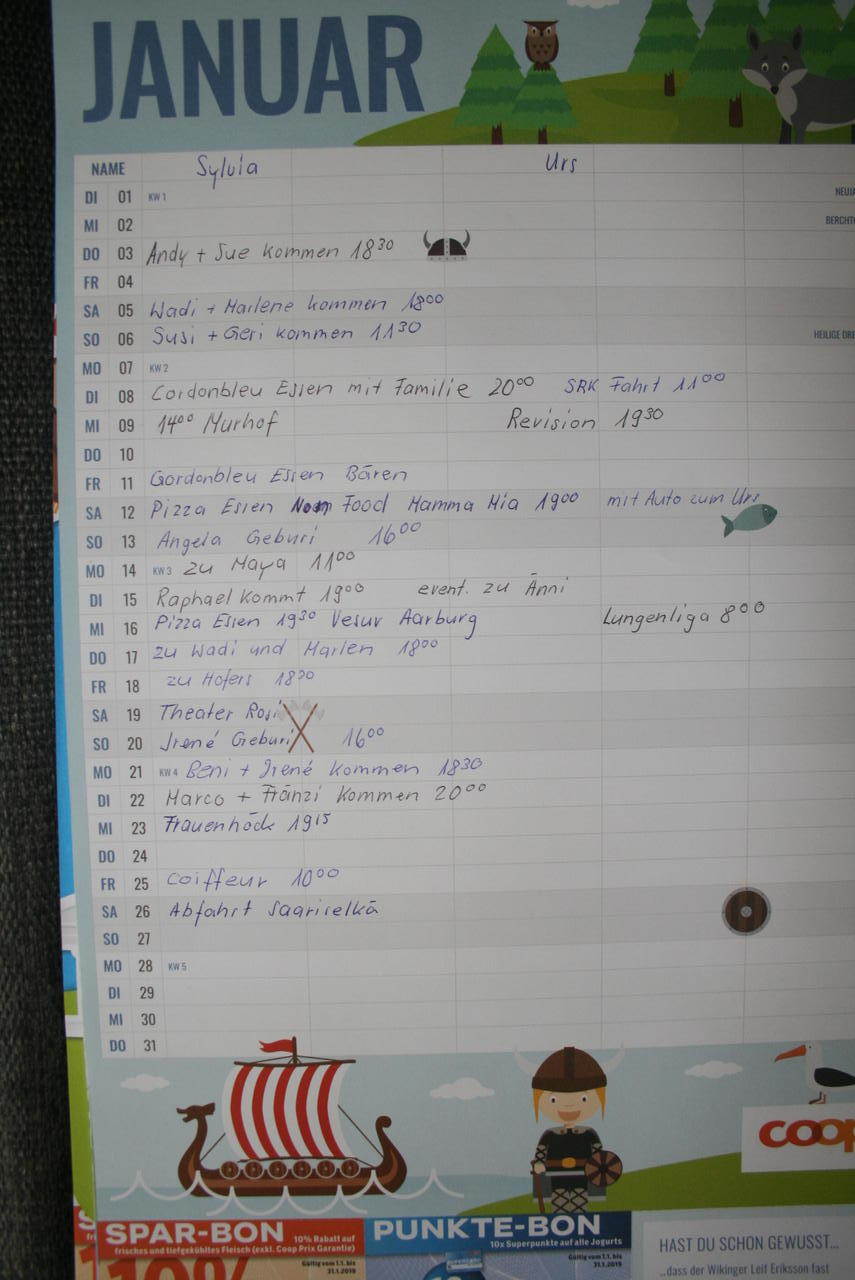 JANUAR
NAME Sylvia Urs
DI 01 KW 1
MI 02
DO 03 Andy + Sue kommen 18³⁰
FR 04
SA 05 Wadi + Marlene kommen 18⁰⁰
SO 06 Susi + Geri kommen 11³⁰
MO 07 KW 2
DI 08 Cordonbleu Essen mit Familie 20⁰⁰ SRK Fahrt 11⁰⁰
MI 09 14⁰⁰ Murhof Revision 19³⁰
DO 10
FR 11 Gordonbleu Essen Bären
SA 12 Pizza Essen Food Mamma Mia 19⁰⁰ mit Auto zum Urs
SO 13 Angela Geburi 16⁰⁰
MO 14 KW 3 zu Maya 11⁰⁰
DI 15 Raphael kommt 19⁰⁰ event. zu Änni
MI 16 Pizza Essen 19³⁰ Vesuv Aarburg Lungenliga 8⁰⁰
DO 17 zu Wadi und Marlen 18⁰⁰
FR 18 zu Hofers 18³⁰
SA 19 Theater Rosi
SO 20 Irené Geburi 16⁰⁰
MO 21 KW 4 Beni + Irené kommen 18³⁰
DI 22 Marco + Fränzi kommen 20⁰⁰
MI 23 Frauenhöck 19¹⁵
DO 24
FR 25 Coiffeur 10⁰⁰
SA 26 Abfahrt Saariselkä
SO 27
MO 28 KW 5
DI 29
MI 30
DO 31
coop
SPAR-BON 10% Rabatt auf
frisches und tiefgekühltes Fleisch (exkl. Coop Prix Garantie)
Gültig vom 1.1. bis
31.1.2019
10%
PUNKTE-BON
10x Superpunkte auf alle Jogurts
Gültig vom 1.1. bis
31.1.2019
HAST DU SCHON GEWUSST...
...dass der Wikinger Leif Eriksson fast